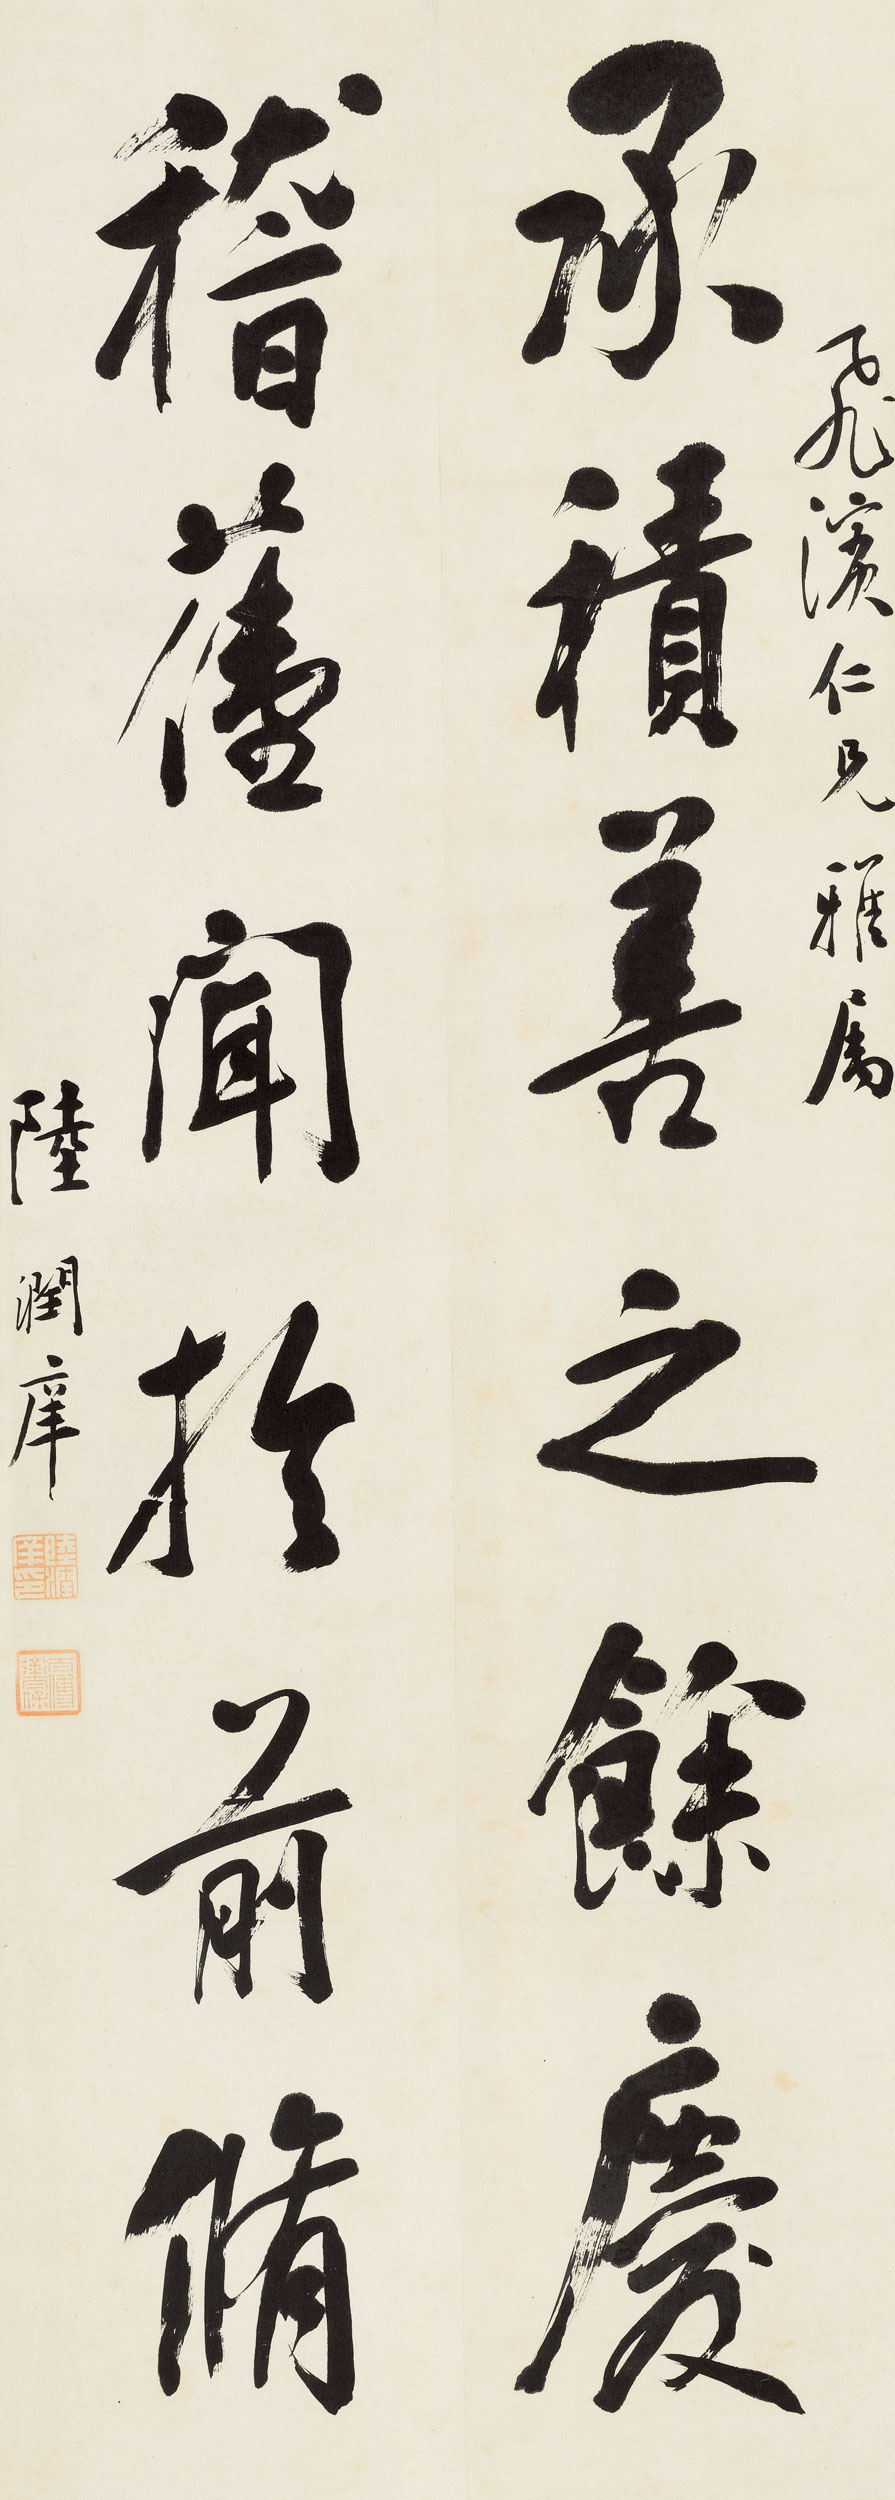 飛濱仁兄雅屬
承積善之餘慶
稽舊聞於前脩
陸潤庠
陸潤庠印